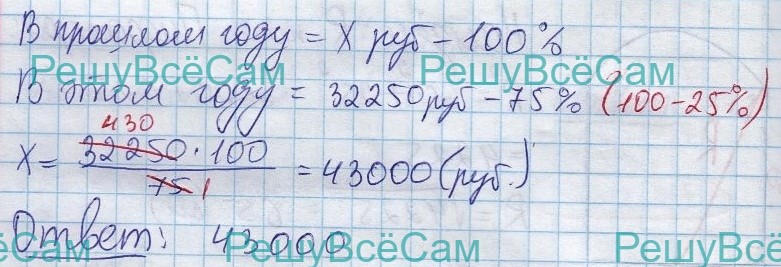 В прошлом году = X руб – 100%
РешуВсёСам РешуВсёСам
В этом году = 32250 руб – 75% (100-25%)
430
X = 32250 · 100 / 75 1 = 43000 (руб.)
Ответ: 43000
ёСам РешуВсёСам РешуВсё